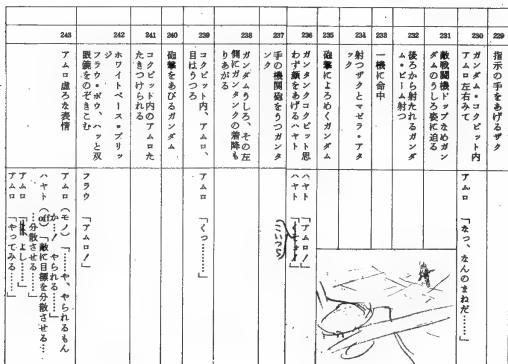 229
指示の手をあげるザク
230
ガンダム・コクピット内
アムロ左右みて
アムロ 「なっ、なんのまねだ……」
231
敵戦闘機ドップなめガン
ダムのうしろ姿に迫る
232
後ろから射たれるガンダ
ム・ビーム射つ
233
一機に命中
234
射つザクとマゼラ・アタ
ック
235
砲撃によろめくガンダム
236
ガンタンクコクピット思
わず顔をあげるハヤト
ハヤト 「アムロ!」
ハヤト
237
手の機関砲をうつガンタ
ンク
(こいつら)
238
ガンダムうしろ、その左
側にガンタンクの着陸も
りあがる
239
コクピット内、アムロ、
目はうつろ
アムロ 「くっ………」
240
砲撃をあびるガンダム
241
コクピット内のアムロた
たきつけられる
242
ホワイトベース=ブリッ
ジ
フラウ・ボウ、ハッと双
眼鏡をのぞきこむ
フラウ 「アムロ!」
243
アムロ虚ろな表情
アムロ (モノ)「……や、やられるもん
か…!やられる……」
ハヤト (off)「敵に目標を分散させる…
…分散させる……」
アムロ 「よし……」
アムロ 「やってみる……」